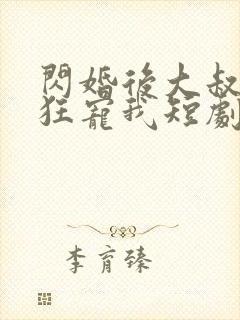 閃婚後大叔
狂寵我短劇
李育臻